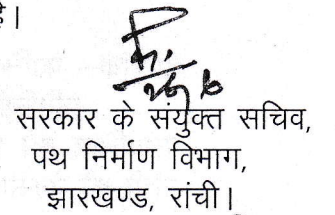 है।
सरकार के संयुक्त सचिव,
पथ निर्माण विभाग,
झारखण्ड, रांची।